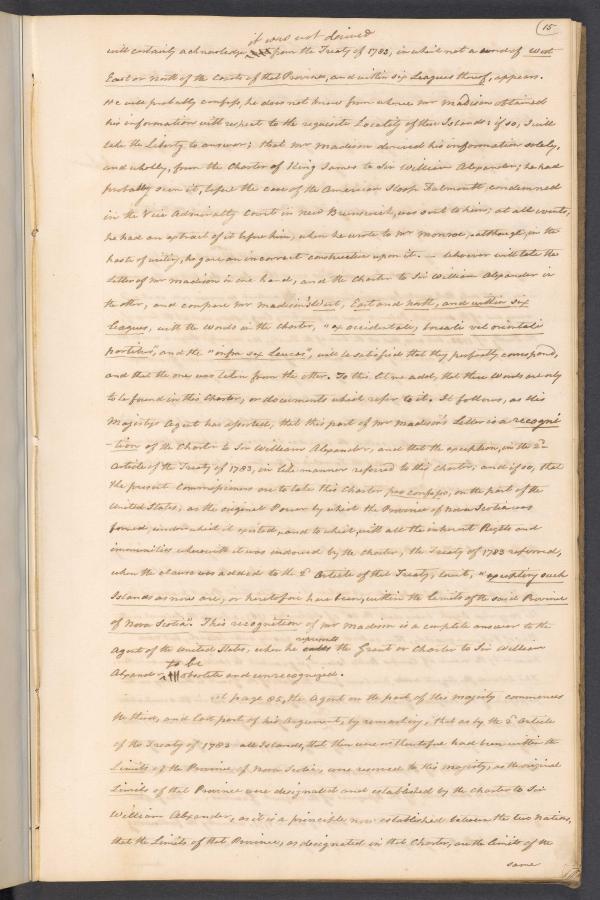 15
it was not derived
will certainly acknowledge from the Treaty of 1783, in which not a word of West
East or North of the Coasts of that Province, and within six Leagues thereof, appears.
He will probably confess, he does not know from whence Mr Madison obtained
his information with respect to the requisite Locality of these Islands: if so, I will
take the Liberty to answer; that Mr Madison derived his information solely,
and wholly, from the Charter of King James to Sir William Alexander; he had
probably seen it, before the case of the American Sloop Falmouth, condemned
in the Vice Admiralty Court in New Brunswick, was sent to him; at all events,
he had an extract of it before him, when he wrote to Mr Monroe, although, in the
haste of writing, he gave an incorrect construction upon it. — Whoever will take the
Letter of Mr Madison in one hand, and the Charter to Sir William Alexander in
the other, and compare Mr Madison's West, East and North, and within six
leagues, with the words in the Charter, "ex occidentale, boreali vel orientali
partibus", and the "infra sex Leucas", will be satisfied that they perfectly correspond,
and that the one was taken from the other. To this let me add, that these words are only
to be found in this Charter, or documents which refer to it. It follows, as His
Majesty's Agent has asserted, that this part of Mr Madison's Letter is a recogni
-tion of the Charter to Sir William Alexander, and that the exception, in the 2d
Article of the Treaty of 1783, in like manner referred to this Charter; and if so, that
the present Commissioners are to take this Charter pro confesso, on the part of the
United States, as the original Power by which the Province of Nova Scotia was
formed, under which it existed, and to which, with all the inherent Rights and
immunities wherewith it was endowed by the Charter, the Treaty of 1783 referred,
when the clause was added to the 2d Article of that Treaty, to wit, "excepting such
Islands as now are, or heretofore have been, within the limits of the said Province
of Nova Scotia". This recognition of Mr Madison is a complete answer to the
represents
Agent of the United States, when he the Grant or Charter to Sir William
to be
Alexander obsolete and unrecognized.
At page 85, the Agent on the part of His Majesty commences
the third, and last part of his Argument, by remarking, that as by the 2d Article
of the Treaty of 1783 all Islands, that then were or theretofore had been within the
Limits of the Province of Nova Scotia, were reserved to His Majesty, as the original
Limits of that Province were designated and established by the Charter to Sir
William Alexander, as it is a principle now established between the two Nations,
that the Limits of that Province, as designated in that Charter, are the limits of the
same